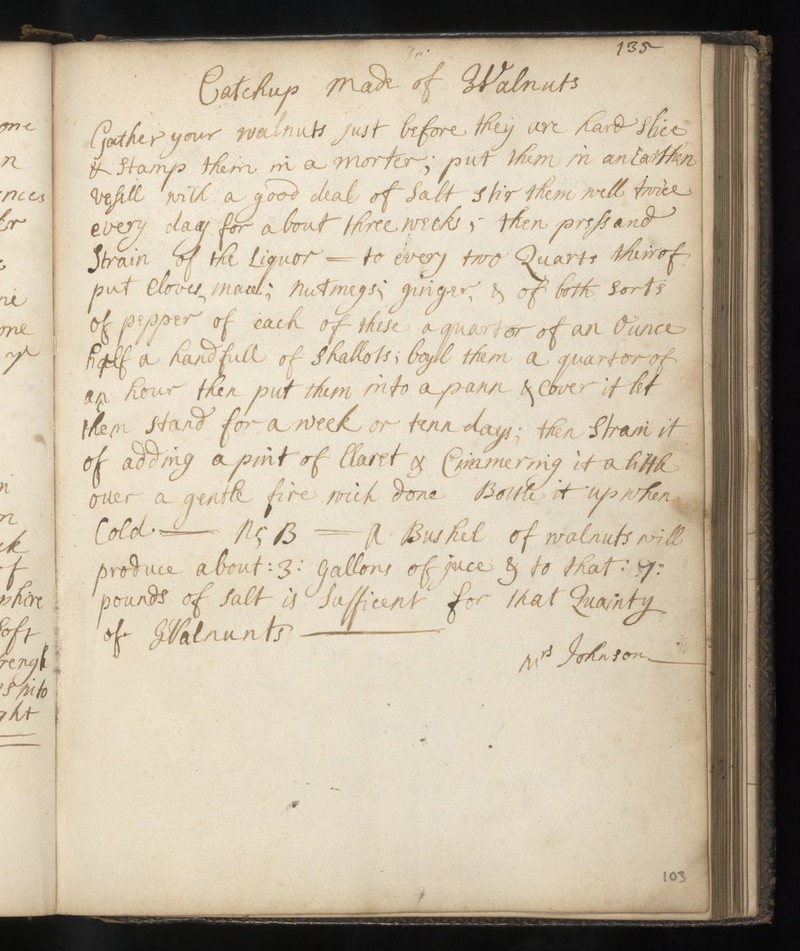 135
Catchup made of Walnuts
Gather your walnuts just before they are hard slice
& stamp them in a morter; put them in an Earthen
vesill with a good deal of Salt stir them well twice
every day for about three weeks; then press and
Strain of the Liquor = to every two Quarts theirof
put Cloves, mace; nutmegs; ginger, & of both sorts
of pepper of each of these a quartor of an Ounce
half a handfull of Shallots; boyl them a quartor of
an hour then put them into a pann & Cover it let
them stand for a week or tenn days; then Strain it
of adding a pint of Claret & Cimmering it a little
over a gentle fire wich done Bottle it up when
Cold — N; B — A Bushel of walnuts will
produce about: 3: gallons of juce & to that: 7:
pounds of Salt is Sufficent for that Quainty
of Walnunts
Mrs Johnson
103
one
n
nces
ne
one
ye
n
ck
of
phire
soft
rengh
s into
ght